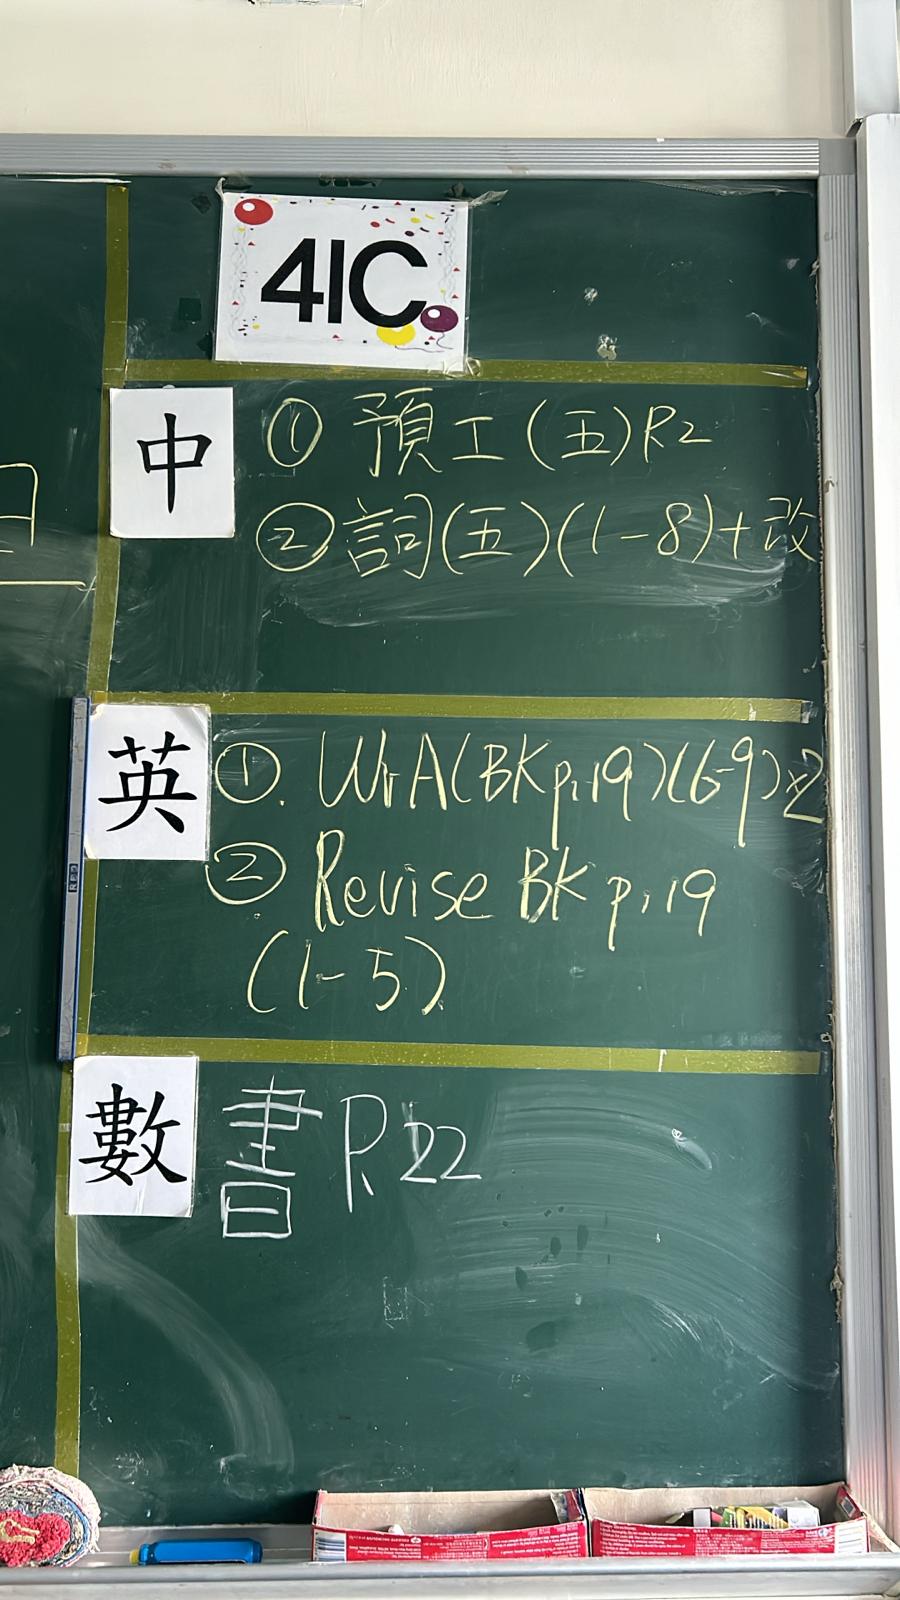 4IC
中
① 預工(五)P.2
② 詞(五)(1-8)+改
英
①. WrA(BK p.19)(6-9)x2
② Revise BK p.19
(1-5)
數
書 P.22